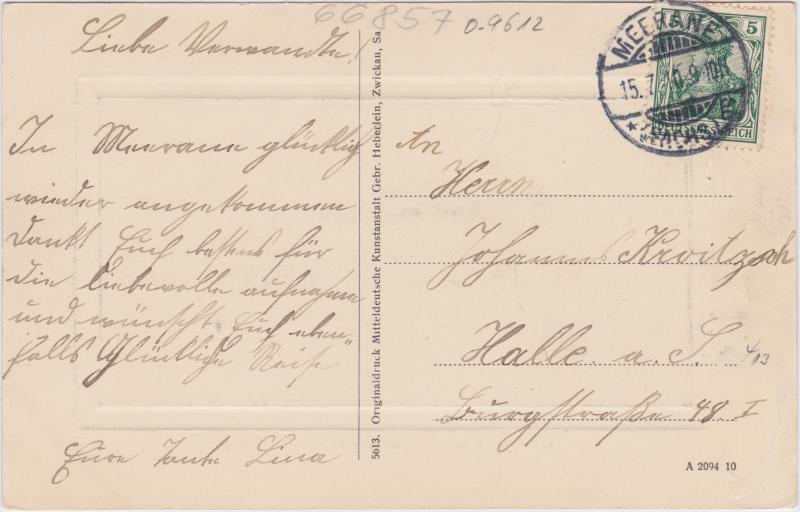 66857
0-9612
Liebe Verwandte!
In Meerane glücklich
wieder angekommen
dankt Euch bestens für
die liebevolle aufnahme
und wünscht Euch eben"
falls Glückliche Reise
Eure Tante Lina
5613. Originaldruck Mitteldeutsche Kunstanstalt Gebr. Heberlein, Zwickau, Sa
MEERANE
15.7. 9-10V
(SACHSEN)
5
REICH
An
Herrn
Johannes Kroitzsch
Halle a. S.
Burgstraße 48 I
A 2094 10